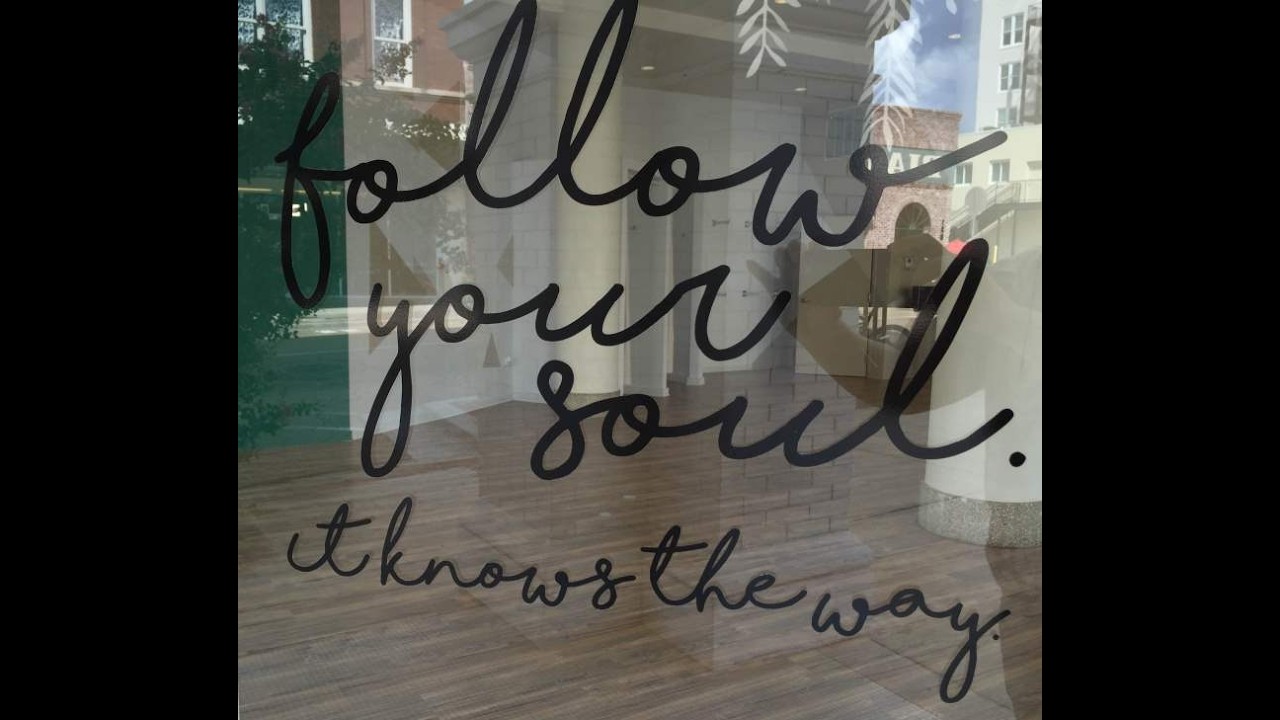 follow
your
soul.
it knows the way.